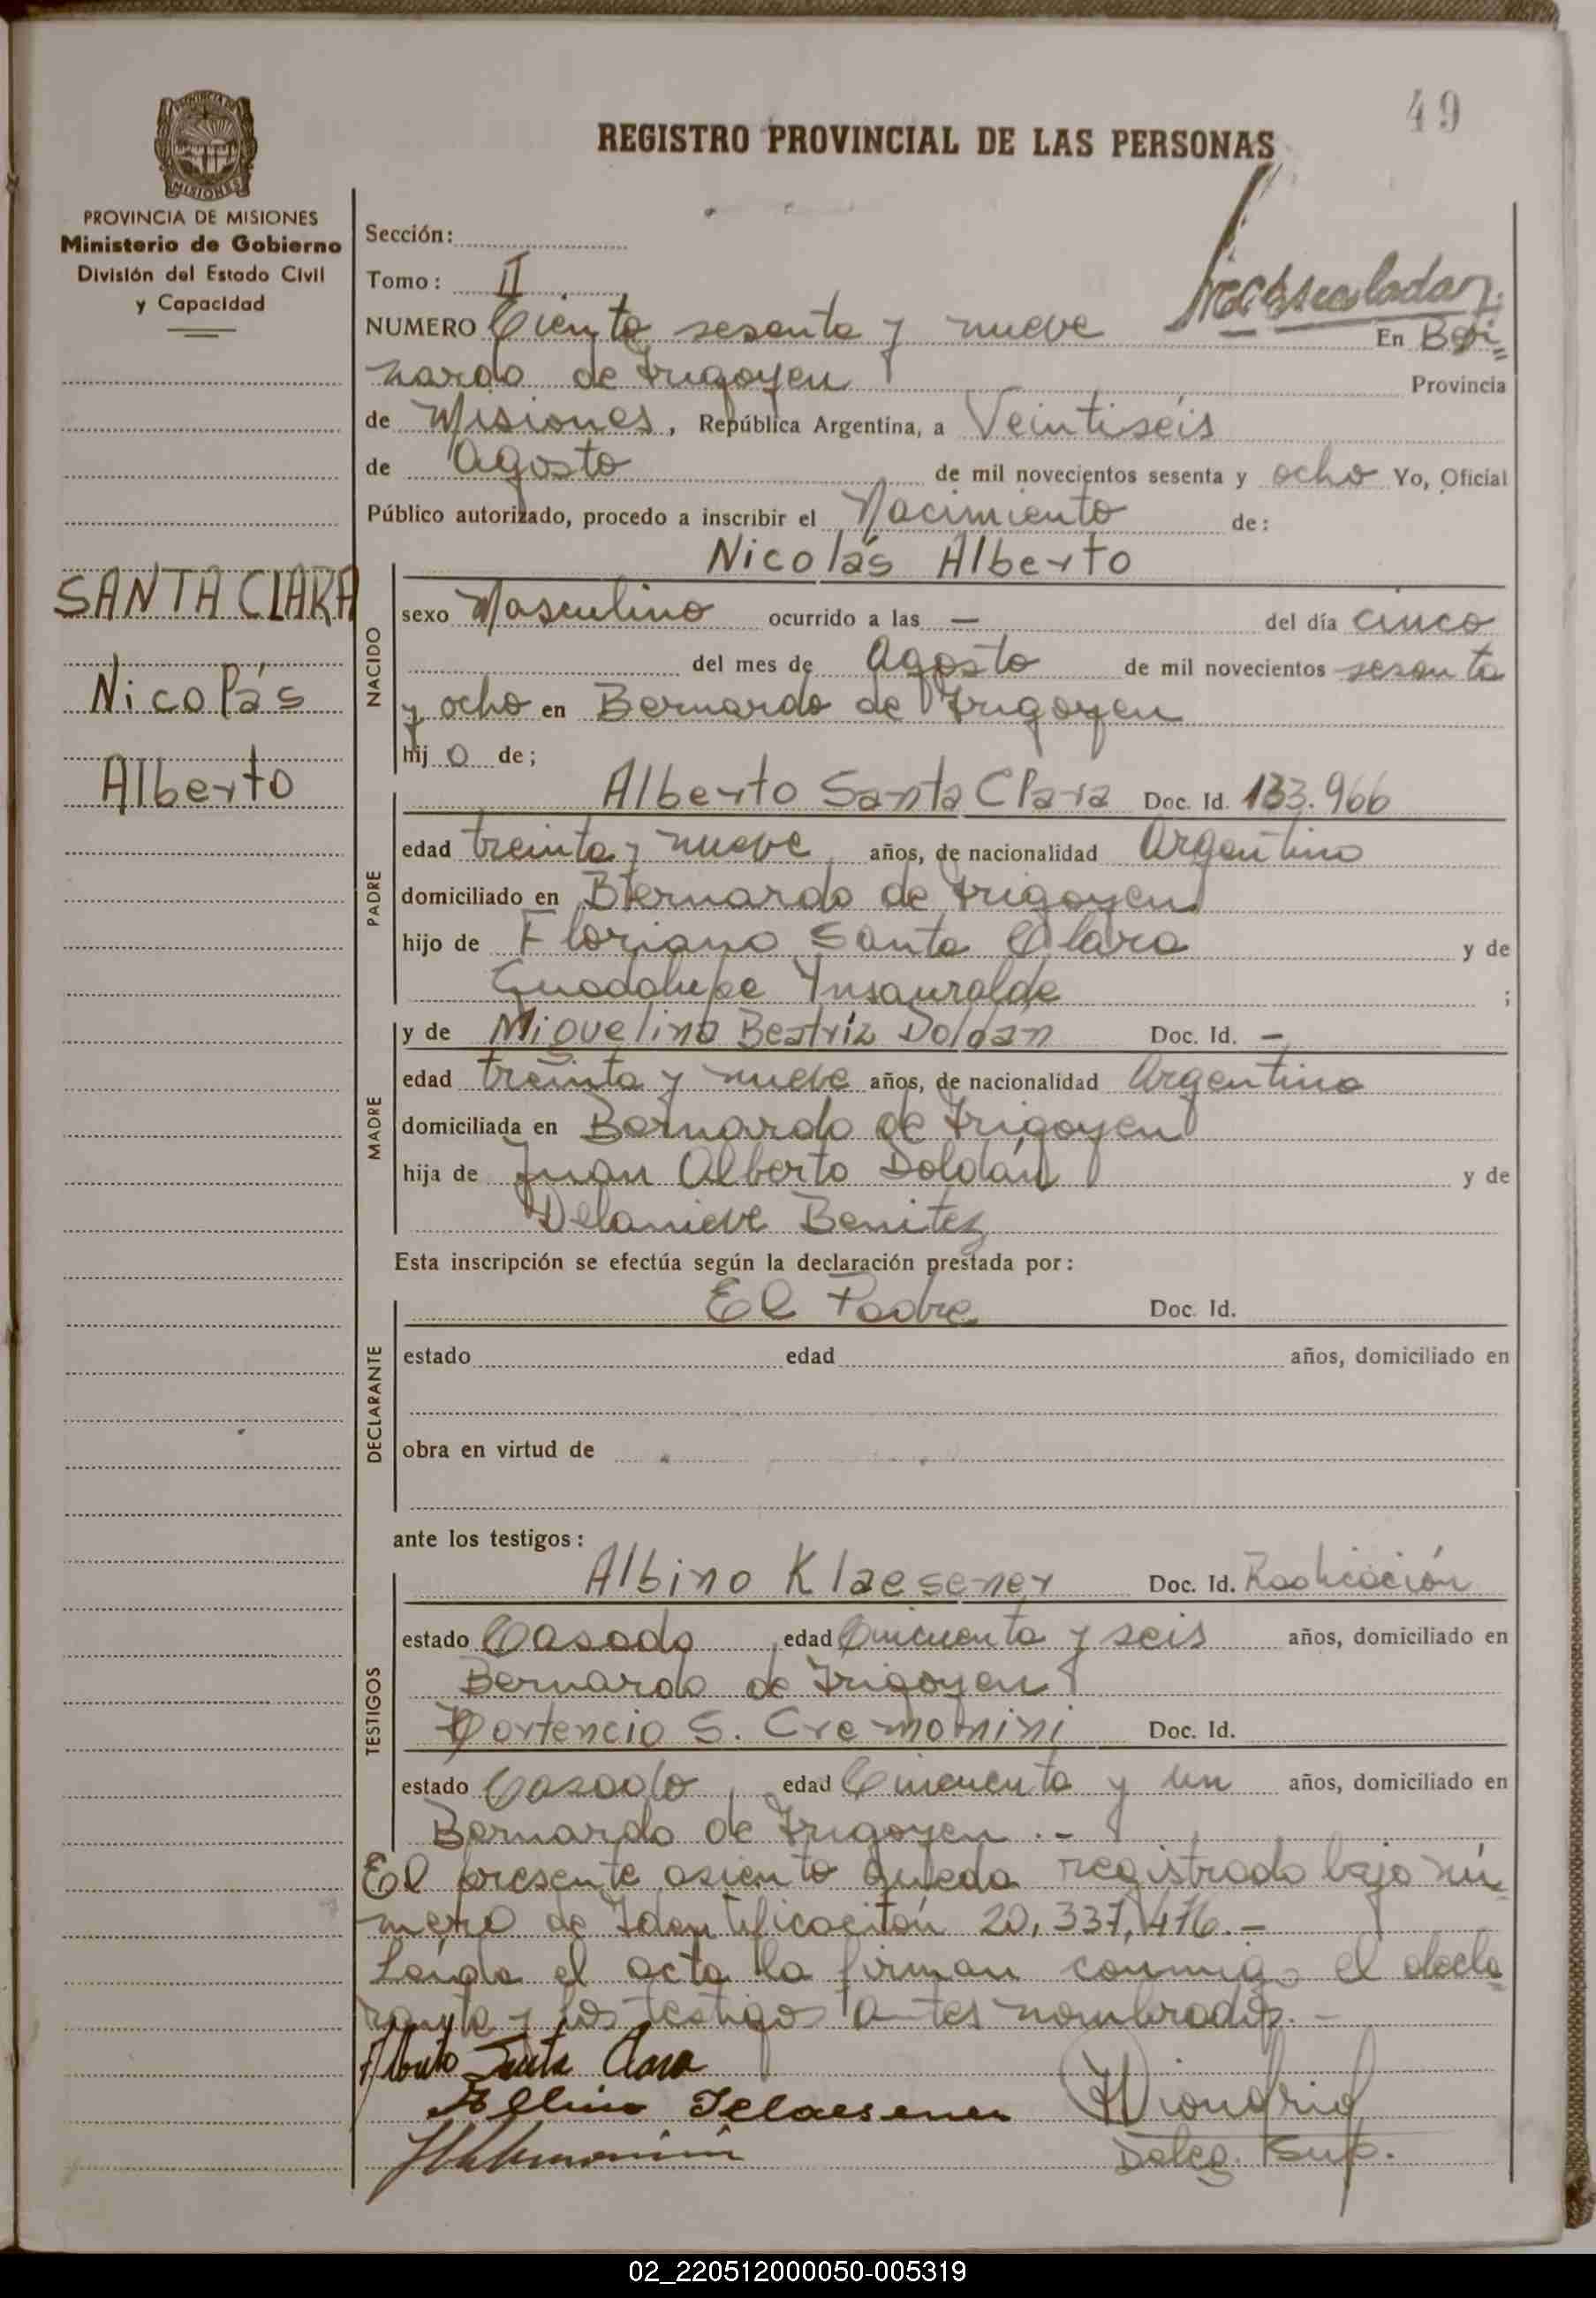 49
REGISTRO PROVINCIAL DE LAS PERSONAS
PROVINCIA DE MISIONES
Ministerio de Gobierno
División del Estado Civil
y Capacidad
SANTA CLARA
Nicolás
Alberto
Sección:
Tomo: II
NUMERO Ciento sesenta y nueve En Ber=
nardo de Irigoyen Provincia
de Misiones, República Argentina, a Veintiséis
de Agosto de mil novecientos sesenta y ocho Yo, Oficial
Público autorizado, procedo a inscribir el Nacimiento de:
Nicolás Alberto
NACIDO
sexo Masculino ocurrido a las — del día cinco
del mes de Agosto de mil novecientos sesenta
y ocho en Bernardo de Irigoyen
hijo de;
PADRE
Alberto Santa Clara Doc. Id. 133.966
edad treinta y nueve años, de nacionalidad Argentino
domiciliado en Bernardo de Irigoyen
hijo de Floriano Santa Clara y de
Guadalupe Ynsauralde ;
MADRE
y de Miguelina Beatriz Doldán Doc. Id. —
edad treinta y nueve años, de nacionalidad Argentina
domiciliada en Bernardo de Irigoyen
hija de Juan Alberto Doldán y de
Delanieve Benitez
Esta inscripción se efectúa según la declaración prestada por:
DECLARANTE
El Padre Doc. Id.
estado edad años, domiciliado en
obra en virtud de
ante los testigos:
TESTIGOS
Albino Klaesener Doc. Id. Radicación
estado Casado edad Cincuenta y seis años, domiciliado en
Bernardo de Irigoyen
Hortencio S. Cremonini Doc. Id.
estado Casado, edad Cincuenta y un años, domiciliado en
Bernardo de Irigoyen.-
El presente asiento queda registrado bajo nú-
mero de Identificación 20,337,476.-
Leída el acta la firman conmigo el decla-
rante y los testigos antes nombrados.-
Alberto Santa Clara
Albino Klaesener
Deleg. Sup.
02_220512000050-005319